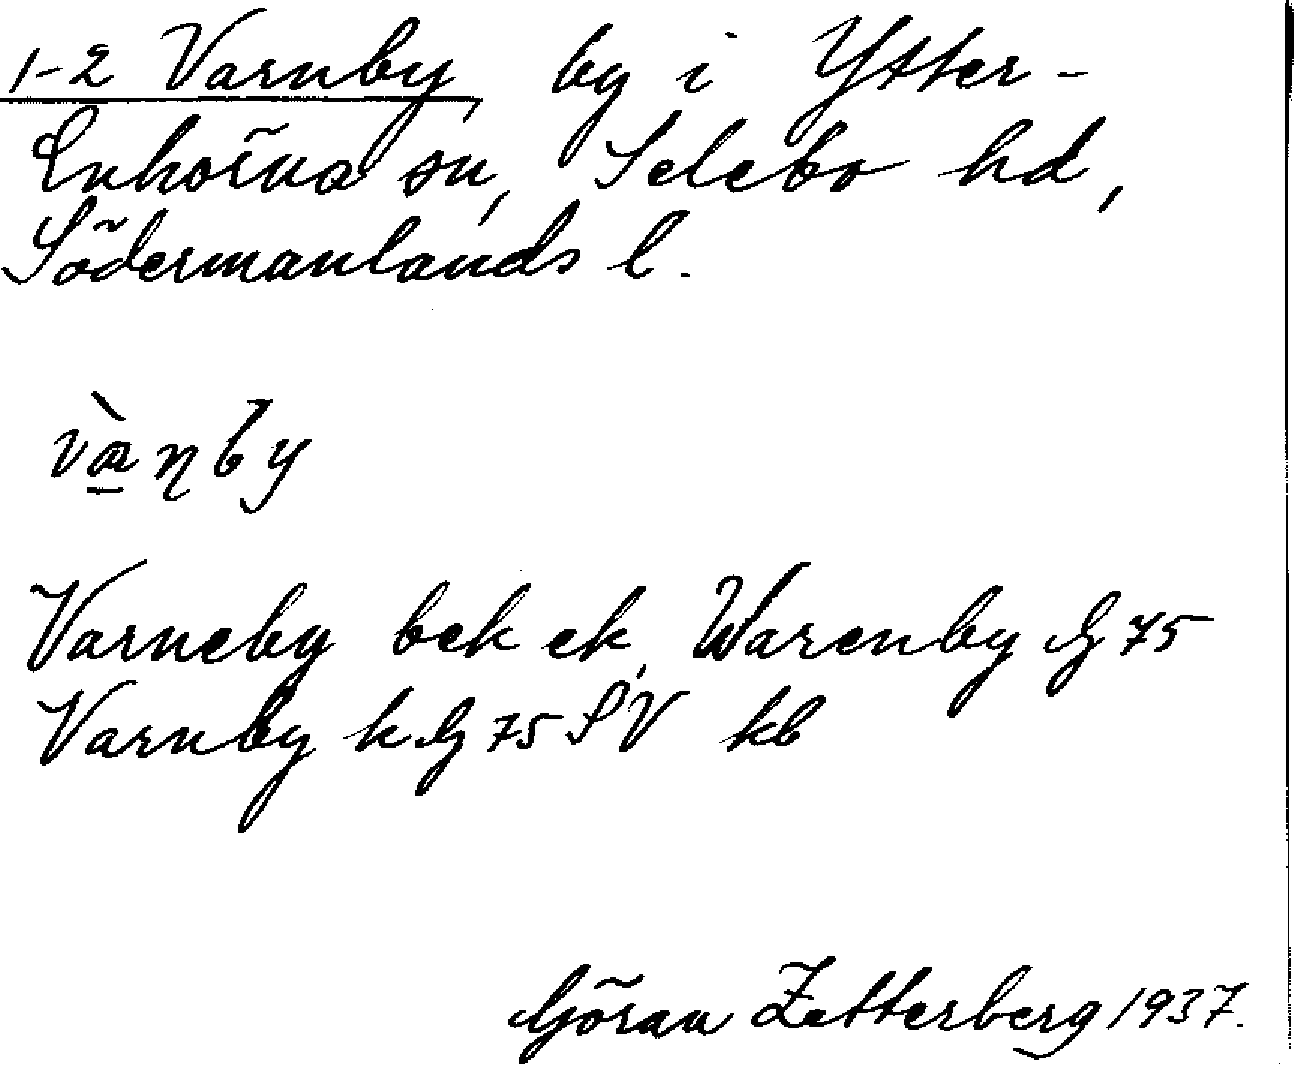 1-2 Varnby, by i Ytter-
Enhörna sn, Selebo hd,
Södermanlands l.
Varneby bek ek, Warenby G 75
Varnby k. G 75 SV kb
Göran Zetterberg 1937.